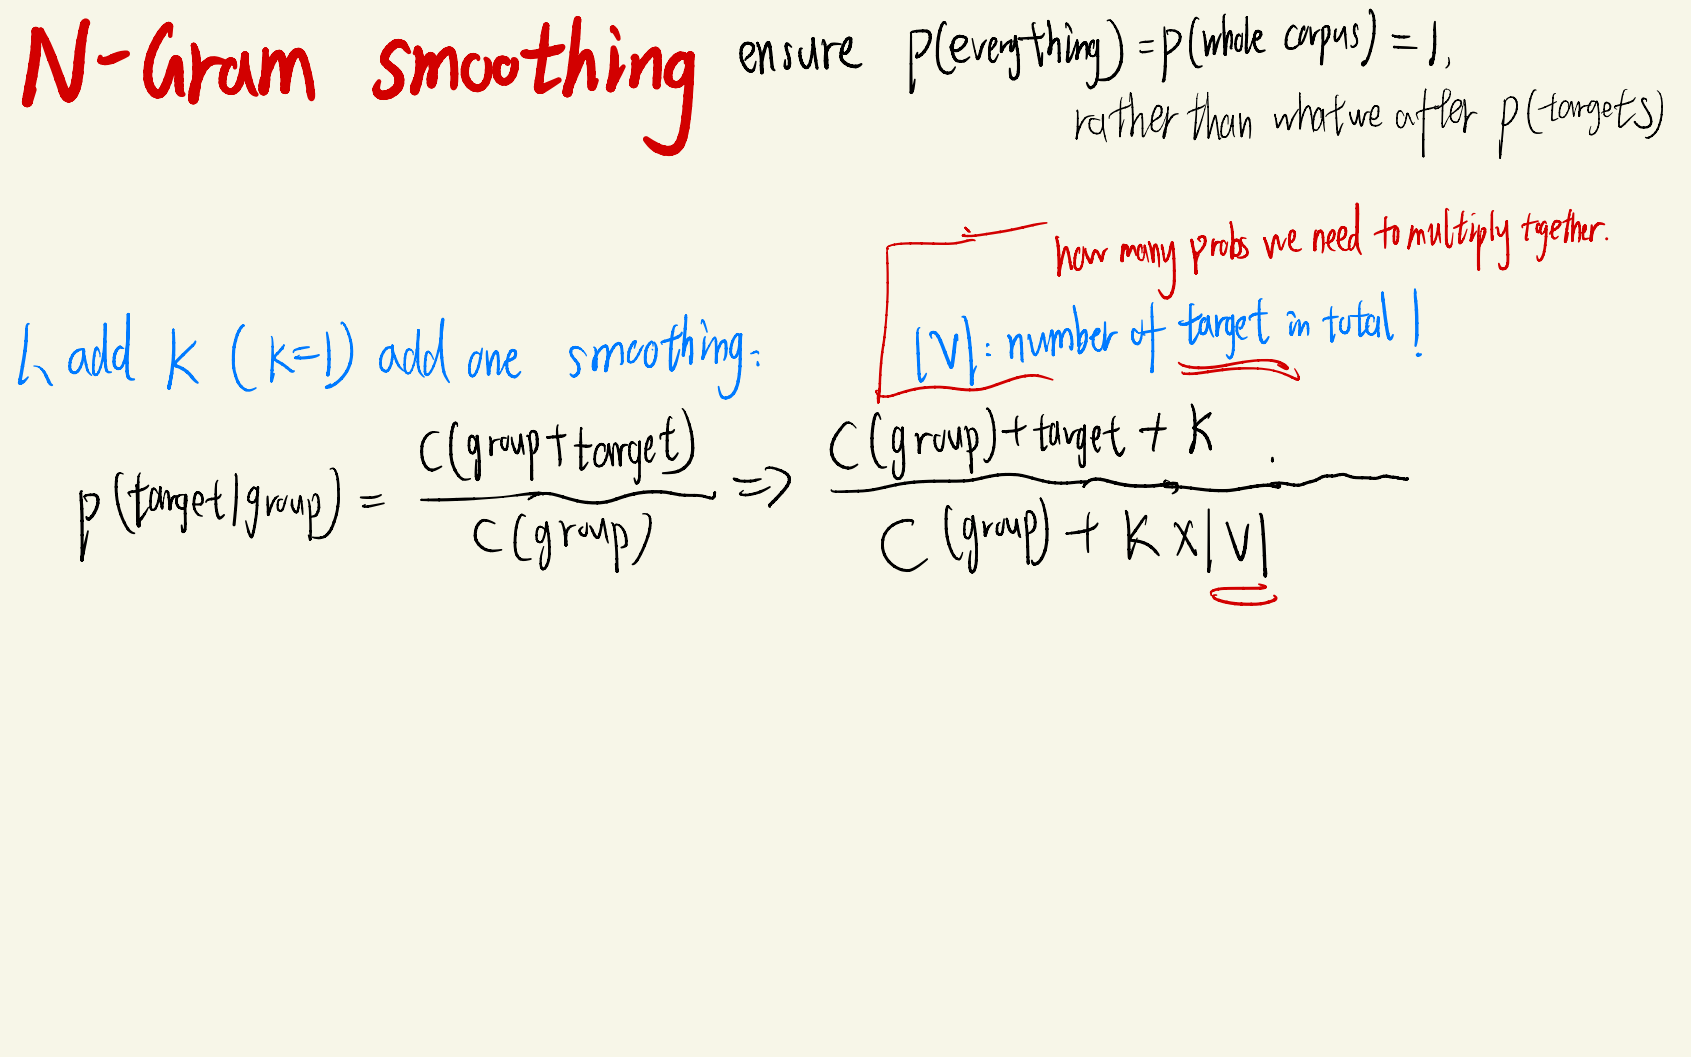 N-Gram smoothing ensure p(everything) = p(whole corpus) = 1,
rather than what we after p(targets)
how many probs we need to multiply together.
1、 add K (K=1) add one smoothing:
|V|: number of target in total!
p(target|group) = C(group+target) / C(group) => C(group)+target + K / C(group) + K x |V|